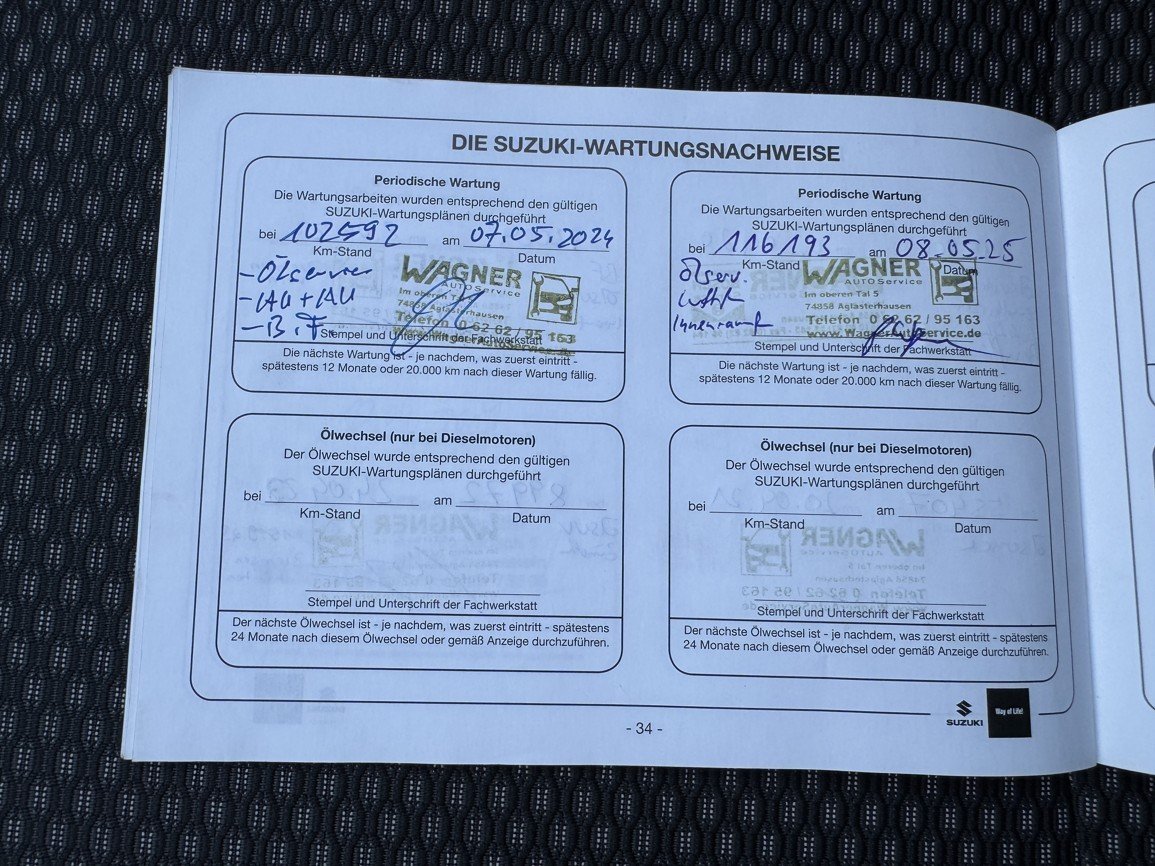 DIE SUZUKI-WARTUNGSNACHWEISE
Periodische Wartung
Die Wartungsarbeiten wurden entsprechend den gültigen
SUZUKI-Wartungsplänen durchgeführt
bei 102592 am 07.05.2024
Km-Stand Datum
- Ölservice
- HU + AU
- B.F.
WAGNER
AUTOService
Im oberen Tal 5
74858 Aglasterhausen
Telefon 0 62 62 / 95 163
Stempel und Unterschrift der Fachwerkstatt
Die nächste Wartung ist - je nachdem, was zuerst eintritt -
spätestens 12 Monate oder 20.000 km nach dieser Wartung fällig.
Periodische Wartung
Die Wartungsarbeiten wurden entsprechend den gültigen
SUZUKI-Wartungsplänen durchgeführt
bei 116193 am 08.05.25
Km-Stand Datum
Ölserv.
Luftf.
Innenraumf.
WAGNER
AUTOService
Im oberen Tal 5
74858 Aglasterhausen
Telefon 0 62 62 / 95 163
www.WagnerAutoService.de
Stempel und Unterschrift der Fachwerkstatt
Die nächste Wartung ist - je nachdem, was zuerst eintritt -
spätestens 12 Monate oder 20.000 km nach dieser Wartung fällig.
Ölwechsel (nur bei Dieselmotoren)
Der Ölwechsel wurde entsprechend den gültigen
SUZUKI-Wartungsplänen durchgeführt
bei am
Km-Stand Datum
Stempel und Unterschrift der Fachwerkstatt
Der nächste Ölwechsel ist - je nachdem, was zuerst eintritt - spätestens
24 Monate nach diesem Ölwechsel oder gemäß Anzeige durchzuführen.
Ölwechsel (nur bei Dieselmotoren)
Der Ölwechsel wurde entsprechend den gültigen
SUZUKI-Wartungsplänen durchgeführt
bei am
Km-Stand Datum
Stempel und Unterschrift der Fachwerkstatt
Der nächste Ölwechsel ist - je nachdem, was zuerst eintritt - spätestens
24 Monate nach diesem Ölwechsel oder gemäß Anzeige durchzuführen.
SUZUKI
Way of Life!
- 34 -